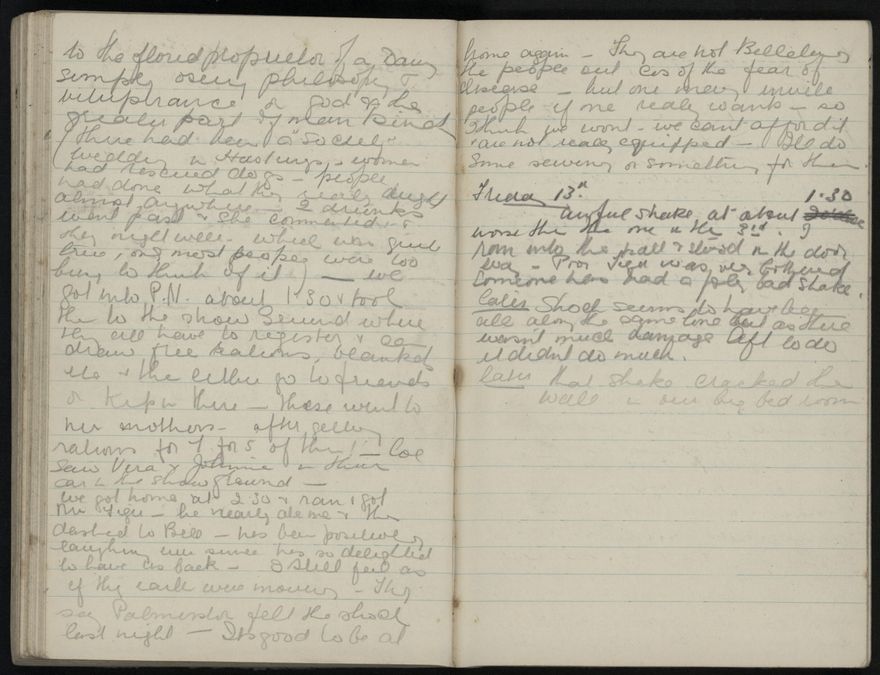 to the florid proprietor of a Dairy
simply oozing philosophy &
vituperance on God & the
greater part of mankind
(There had been a "Society"
wedding in Hastings, women
had rescued dogs - people
had done what they really ought
almost anywhere - 2 drunks
went past & she commented it
they might well - which was quite
true, only most people were too
busy to think of it) - we
got into P.N. about 1.30 & took
them to the show Ground where
they all have to register & can
draw free rations, blankets
etc & the either go to friends
or kept there - these went to
her mothers - after getting
rations for 7 for 5 of them! - we
saw Vera & Johnnie in their
car in the showground -
we got home at 2.30 & ran & got
Mr Tigu - he nearly ate me & then
dashed to Bell - hes been positively
laughing ever since hes so delighted
to have us back - I still feel as
if the earth were moving - They
say Palmerston felt the shock
last night - Its good to be at
home again - They are not Belleting
the people out cos of the fear of
disease - but one may invite
people if one really wants - so
I think we wont - we cant afford it
& are not really equipped - I'll do
some sewing or something for them.
Friday 13th 1.30
Awful shake at about
worse than the one on the 3rd. I
ran into the hall & stood in the door
way - Poor Tigu was very bothered
Someone has had a jolly bad shake.
Later Shock seems to have been
all along the same line but as there
wasn't much damage left to do
it didn't do much.
Later That shake cracked the
wall in our big bed room